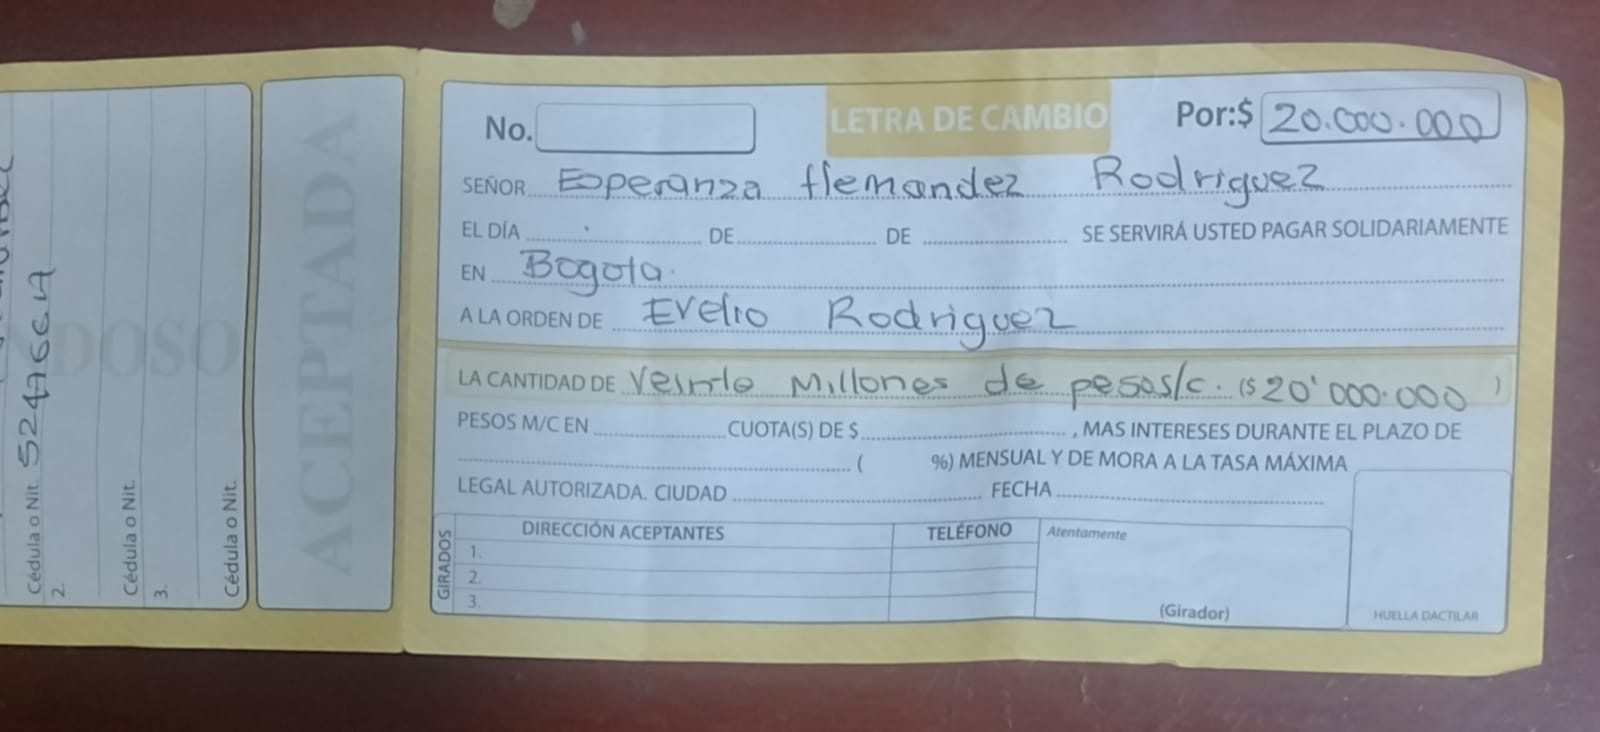 No.
LETRA DE CAMBIO
Por:$ 20.000.000
SEÑOR Esperanza Hernandez Rodriguez
EL DÍA DE DE SE SERVIRÁ USTED PAGAR SOLIDARIAMENTE
EN Bogota.
A LA ORDEN DE Evelio Rodriguez
LA CANTIDAD DE Veinte Millones de pesos/c. ($ 20'000.000 )
PESOS M/C EN CUOTA(S) DE $ , MAS INTERESES DURANTE EL PLAZO DE
( %) MENSUAL Y DE MORA A LA TASA MÁXIMA
LEGAL AUTORIZADA. CIUDAD FECHA
GIRADOS
DIRECCIÓN ACEPTANTES TELÉFONO
1.
2.
3.
Atentamente
(Girador)
HUELLA DACTILAR
ACEPTADA
Cédula o Nit.
2.
Cédula o Nit.
3.
Cédula o Nit.